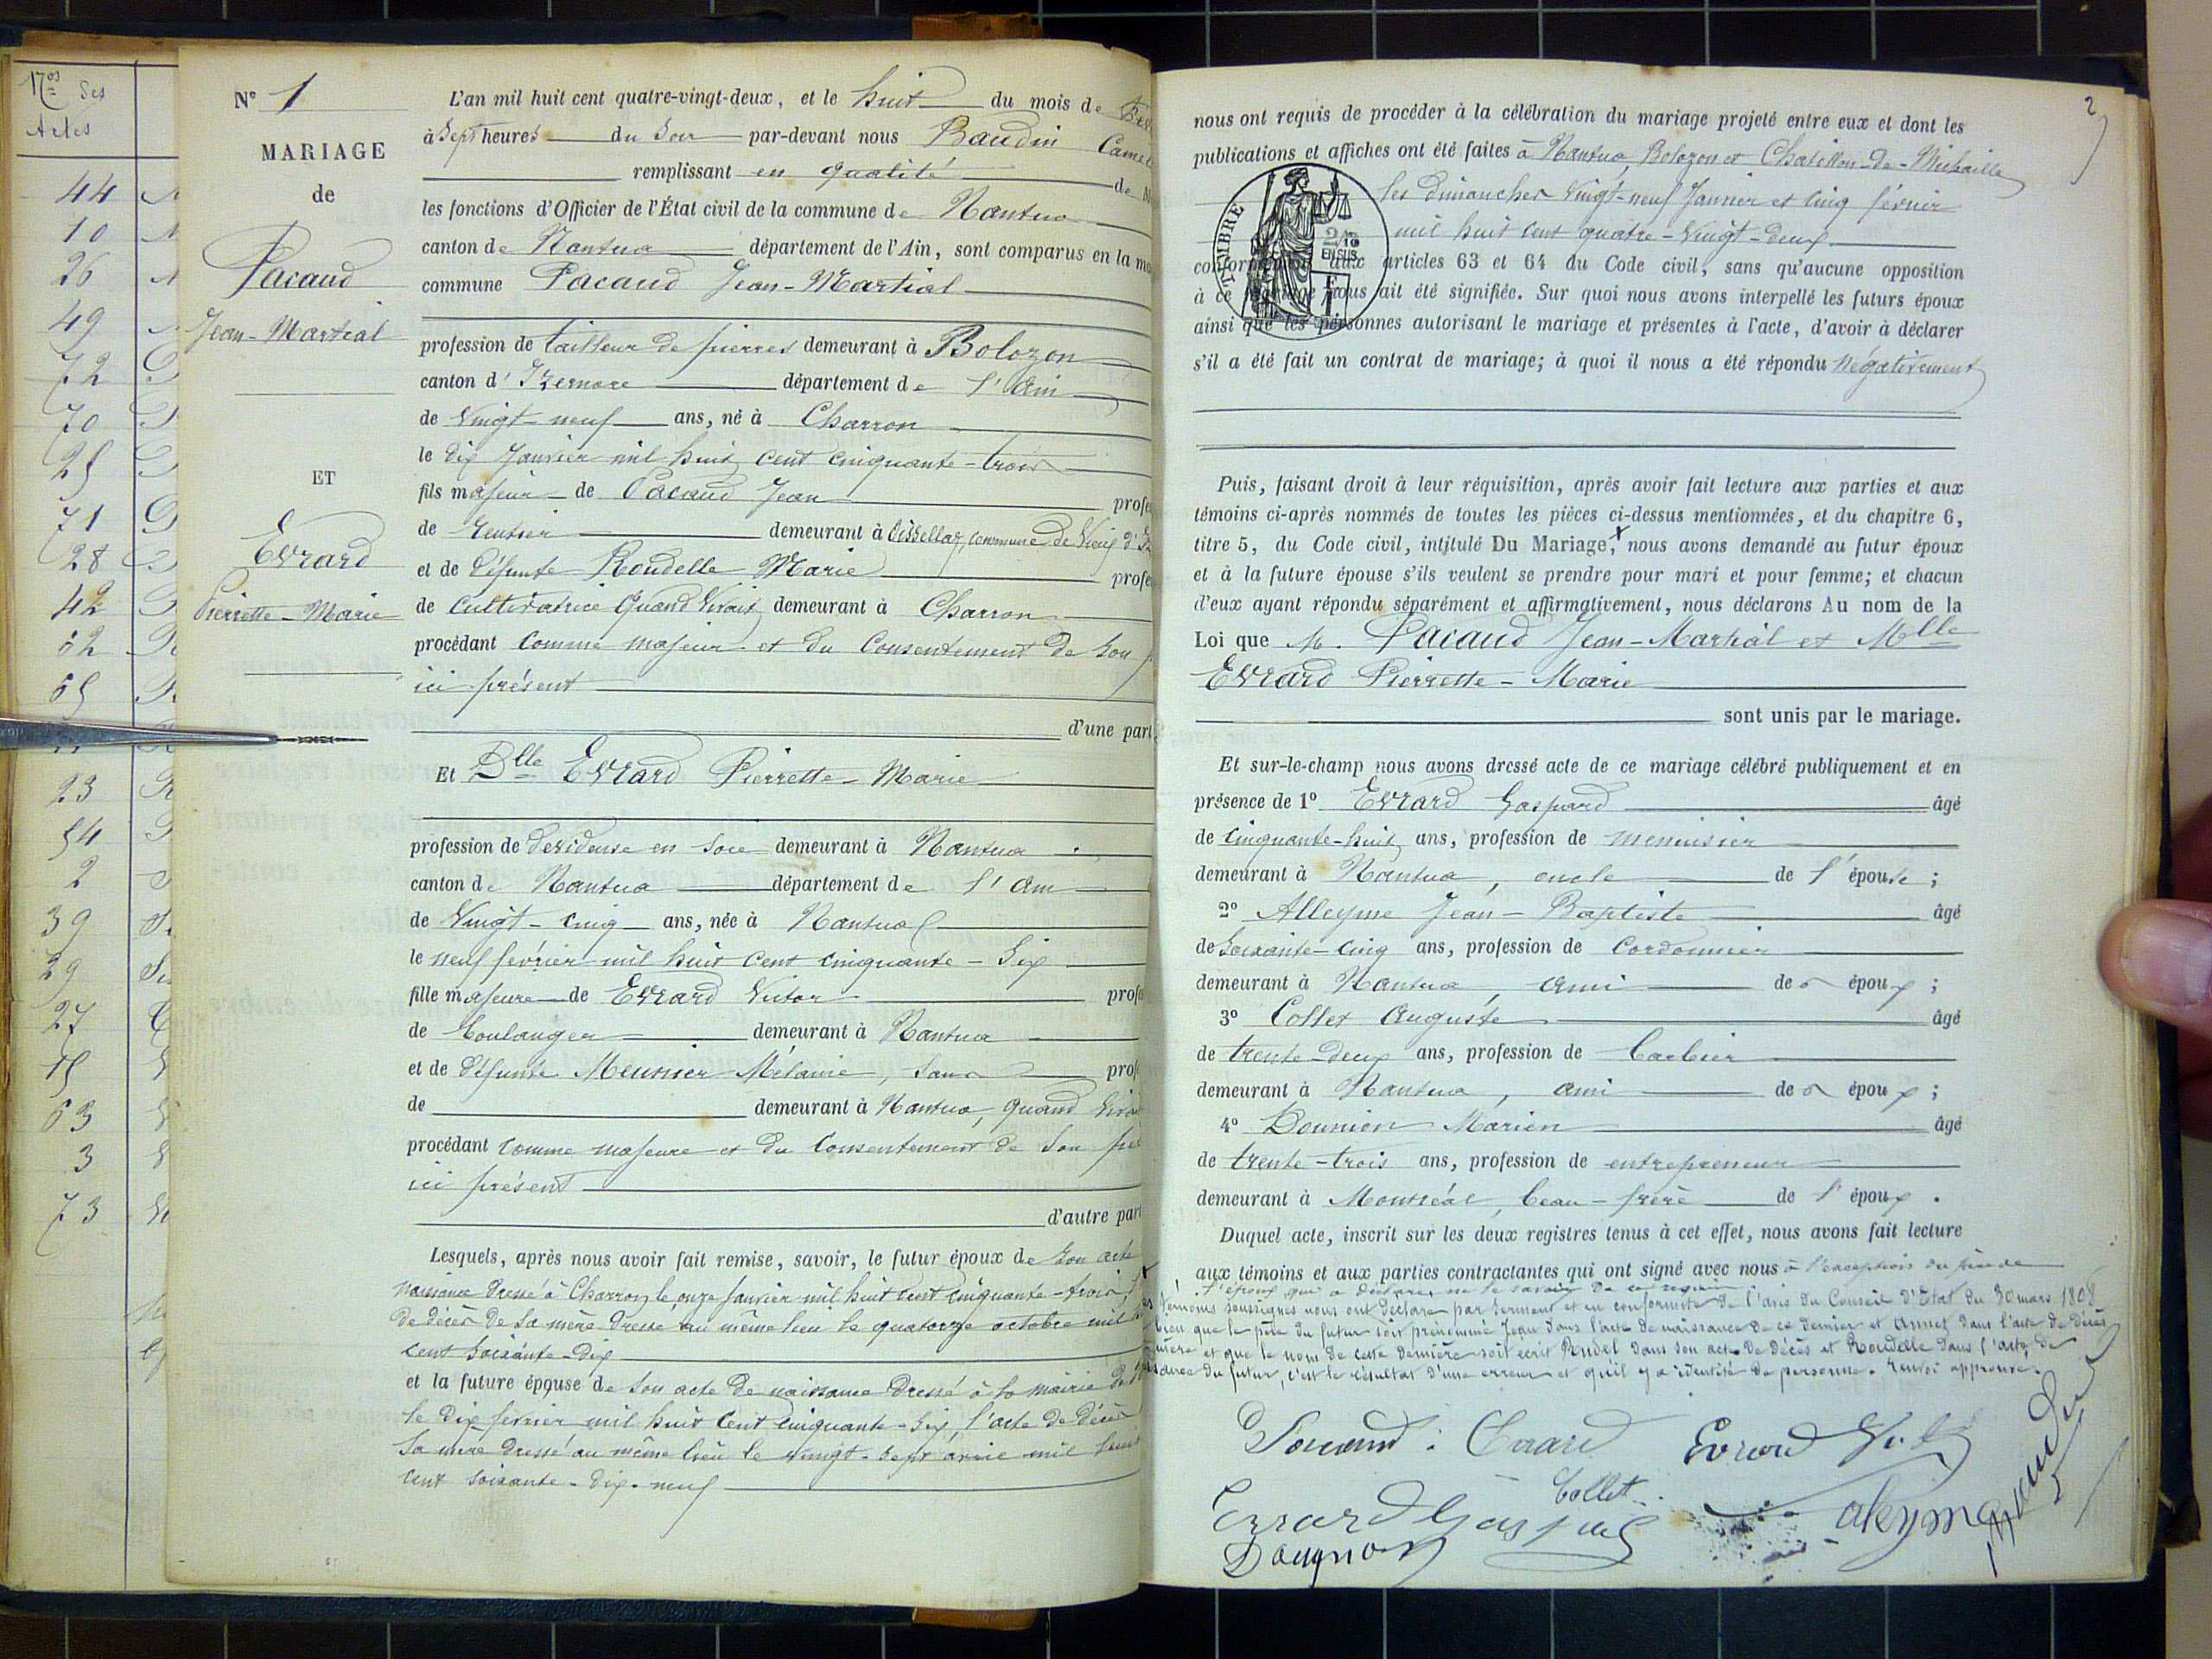 17os
des
Actes
44
10
26
49
72
70
25
71
28
42
62
65
23
54
2
39
29
27
15
63
3
73
N° 1
MARIAGE
de
Pacaud
Jean-Martial
ET
Evrard
Pierrette-Marie
L'an mil huit cent quatre-vingt-deux, et le huit du mois de
à sept heures du soir par-devant nous Baudin
remplissant en qualité de
les fonctions d'Officier de l'État civil de la commune de Nantua
canton de Nantua département de l'Ain, sont comparus en la
commune Pacaud Jean-Martial
profession de tailleur de pierres demeurant à Bolozon
canton d'Izernore département de l'Ain
de vingt-neuf ans, né à Charron
le dix Janvier mil huit cent cinquante-trois
fils majeur de Pacaud Jean
de rentier demeurant à commune de Vieu d'
et de défunte Roudelle Marie
de cultivatrice quand vivait demeurant à Charron
procédant comme majeur et du consentement de son
ici présent
d'une part
Et Dlle Evrard Pierrette-Marie
profession de devideuse en soie demeurant à Nantua
canton de Nantua département de l'Ain
de vingt-cinq ans, née à Nantua
le neuf février mil huit cent cinquante-six
fille majeure de Evrard Victor
de boulanger demeurant à Nantua
et de défunte Meunier Mélanie, sans
de demeurant à Nantua, quand
procédant comme majeure et du consentement de son
ici présent
d'autre part
Lesquels, après nous avoir fait remise, savoir, le futur époux de son acte
naissance dressé à Charron le onze Janvier mil huit cent cinquante-trois
de décès de sa mère dressé au même lieu le quatorze octobre mil
cent soixante-dix
et la future épouse de son acte de naissance dressé à la mairie de
le dix février mil huit cent cinquante-six, l'acte de décès
sa mère dressé au même lieu le vingt-sept avril mil huit
cent soixante-dix-neuf
2
nous ont requis de procéder à la célébration du mariage projeté entre eux et dont les
publications et affiches ont été faites à Nantua, Bolozon et Chatillon-de-Michaille
les dimanches vingt-neuf Janvier et cinq février
mil huit cent quatre-vingt-deux
TIMBRE
2/10
EN SUS
conformément aux articles 63 et 64 du Code civil, sans qu'aucune opposition
à ce mariage nous ait été signifiée. Sur quoi nous avons interpellé les futurs époux
ainsi que les personnes autorisant le mariage et présentes à l'acte, d'avoir à déclarer
s'il a été fait un contrat de mariage; à quoi il nous a été répondu négativement
Puis, faisant droit à leur réquisition, après avoir fait lecture aux parties et aux
témoins ci-après nommés de toutes les pièces ci-dessus mentionnées, et du chapitre 6,
titre 5, du Code civil, intitulé Du Mariage, nous avons demandé au futur époux
et à la future épouse s'ils veulent se prendre pour mari et pour femme; et chacun
d'eux ayant répondu séparément et affirmativement, nous déclarons Au nom de la
Loi que M. Pacaud Jean-Martial et Melle
Evrard Pierrette-Marie
sont unis par le mariage.
Et sur-le-champ nous avons dressé acte de ce mariage célébré publiquement et en
présence de 1° Evrard Gaspard âgé
de cinquante-huit ans, profession de menuisier
demeurant à Nantua, oncle de l'épouse;
2° Alleyme Jean-Baptiste âgé
de soixante-cinq ans, profession de cordonnier
demeurant à Nantua, ami des époux;
3° Collet Auguste âgé
de trente-deux ans, profession de barbier
demeurant à Nantua, ami des époux;
4° Dounion Marien âgé
de trente-trois ans, profession de entrepreneur
demeurant à Montréal, beau-frère de l'époux.
Duquel acte, inscrit sur les deux registres tenus à cet effet, nous avons fait lecture
aux témoins et aux parties contractantes qui ont signé avec nous à l'exception du père de
l'époux qui a déclaré ne le savoir de ce requis
témoins soussignés nous ont déclaré par serment et en conformité de l'avis du Conseil d'Etat du 30 mars 1808
bien que le père du futur soit prénommé Jean dans l'acte de naissance de ce dernier et Annet dans l'acte de décès
mère et que le nom de cette dernière soit écrit Rudel dans son acte de décès et Roudelle dans l'acte de
du futur, c'est le résultat d'une erreur et qu'il y a identité de personne. renvoi approuvé.
Evrard
Evrard
Collet
Evrard Gaspard
aleyme